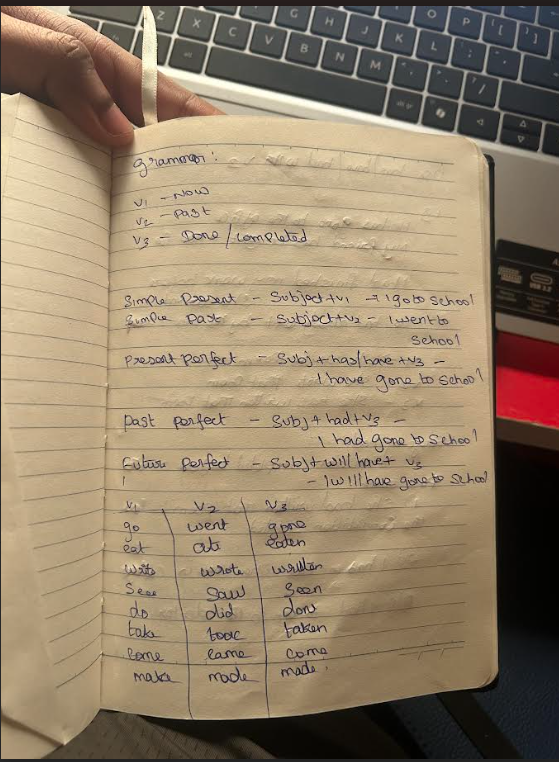 grammar:
V1 - Now
V2 - Past
V3 - Done / completed
Simple Present - Subject+V1 → I go to school
Simple Past - Subject+V2 - I went to
school
Present perfect - Subj+has/have+V3 -
I have gone to school
Past perfect - Subj+had+V3 -
I had gone to school
Future perfect - Subj+will have+ V3
- I will have gone to school
V1 V2 V3
go went gone
eat ate eaten
write wrote written
See saw Seen
do did done
take took taken
come came come
make made made